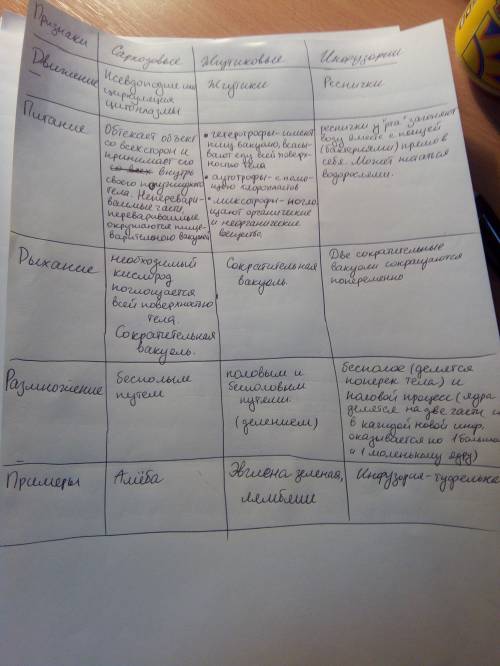 Признаки
Саркодовые
Жгутиковые
Инфузории
Движение
Псевдоподии или
циркуляция
цитоплазмы
Жгутики
Реснички
Питание
Обтекает объект
со всех сторон и
принимает его
внутрь
своего полужидкого
тела. Неперевари-
ваемые части,
перевариваемые
окружаются пище-
варительною вакуолей
• гетеротрофы - имеют
пищ. вакуолю, всасы-
вают еду всей поверх-
ностью тела
• аутотрофы - с помо-
щью хлоропластов
• миксотрофы - погло-
щают органические
и неорганические
вещества.
реснички у "рта" загоняют
воду вместе с пищей
(бактериями) прямо в
себя. Может питаться
водорослями.
Дыхание
необходимый
кислород
поглощается
всей поверхностью
тела.
Сократительная
вакуоль.
Сократительная
вакуоль
Две сократительные
вакуоли сокращаются
попеременно
Размножение
бесполым
путем
половым и
бесполовым
путями
(делением)
бесполое (делится
поперек тела) и
половой процесс (ядра
делятся на две части и
в каждой новой инф.
оказывается по 1 большому
и 1 маленькому ядру)
Примеры
Амёба
Эвглена зеленая,
лямблии
Инфузория-туфелька